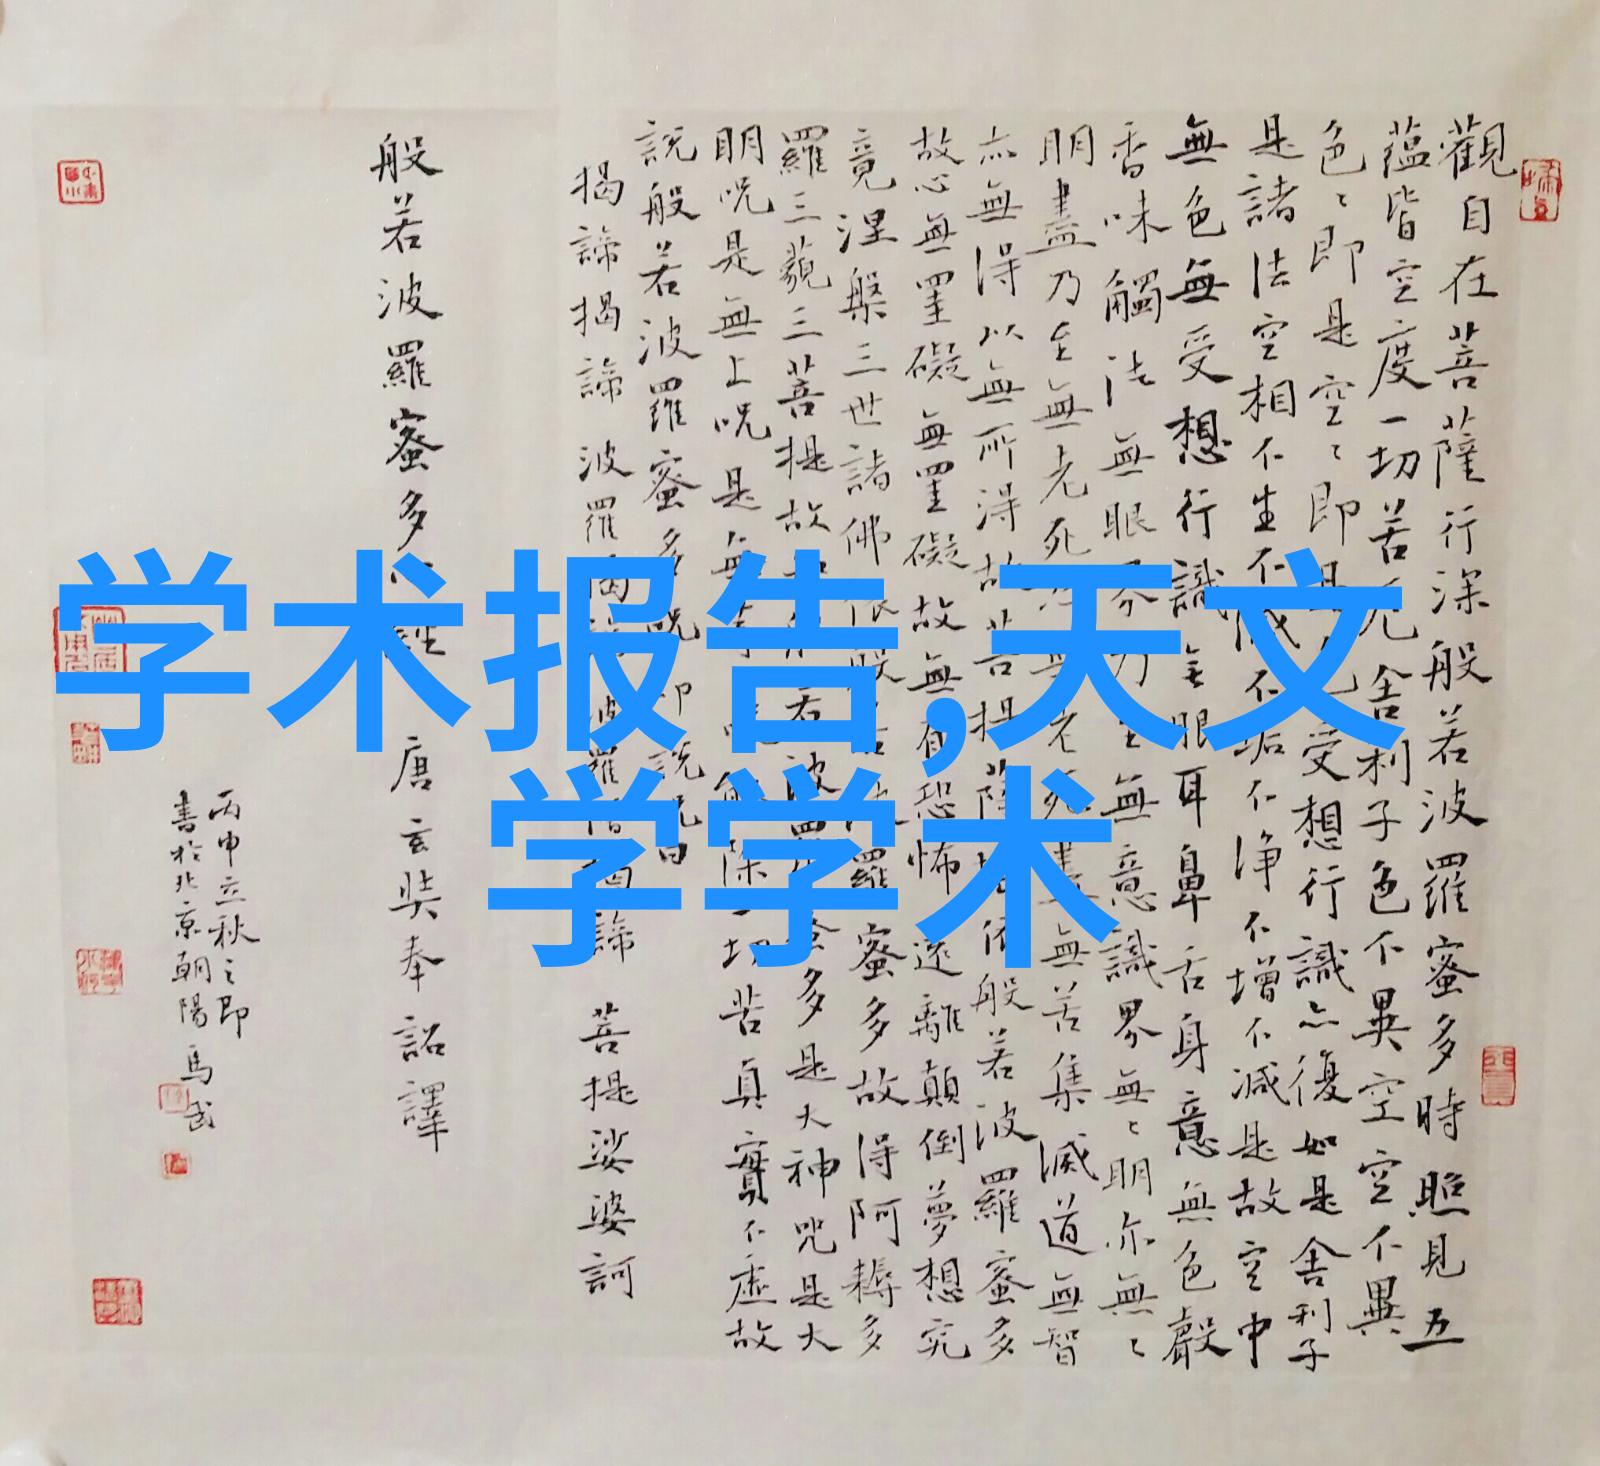 学术报告,天文
学学术
觀自在菩薩行深般若波羅蜜多時照見五
蘊皆空度一切苦厄舍利子色不異空空不異
色〻即是空〻即是色受想行識亦復如是舍利子
是諸法空相不生不滅不垢不淨不增不減是故空中
無色無受想行識無眼耳鼻舌身意無色聲
香味觸法無眼界乃至無意識界無〻明亦無〻
明盡乃至無老死亦無老死盡無苦集滅道無智
亦無得以無所得故菩提薩埵依般若波羅蜜多
故心無罣礙無罣礙故無有恐怖遠離顛倒夢想究
竟涅槃三世諸佛依般若波羅蜜多故得阿耨多
羅三藐三菩提故知般若波羅蜜多是大神咒是大
明呪是無上呪是無等等呪能除一切苦真實不虛故
說般若波羅蜜多呪即說呪曰
揭諦揭諦 波羅揭諦 波羅僧揭諦 菩提娑婆訶
般若波羅蜜多心經 唐玄奘奉詔譯
丙申立秋之即
書於北京朝陽 馬武